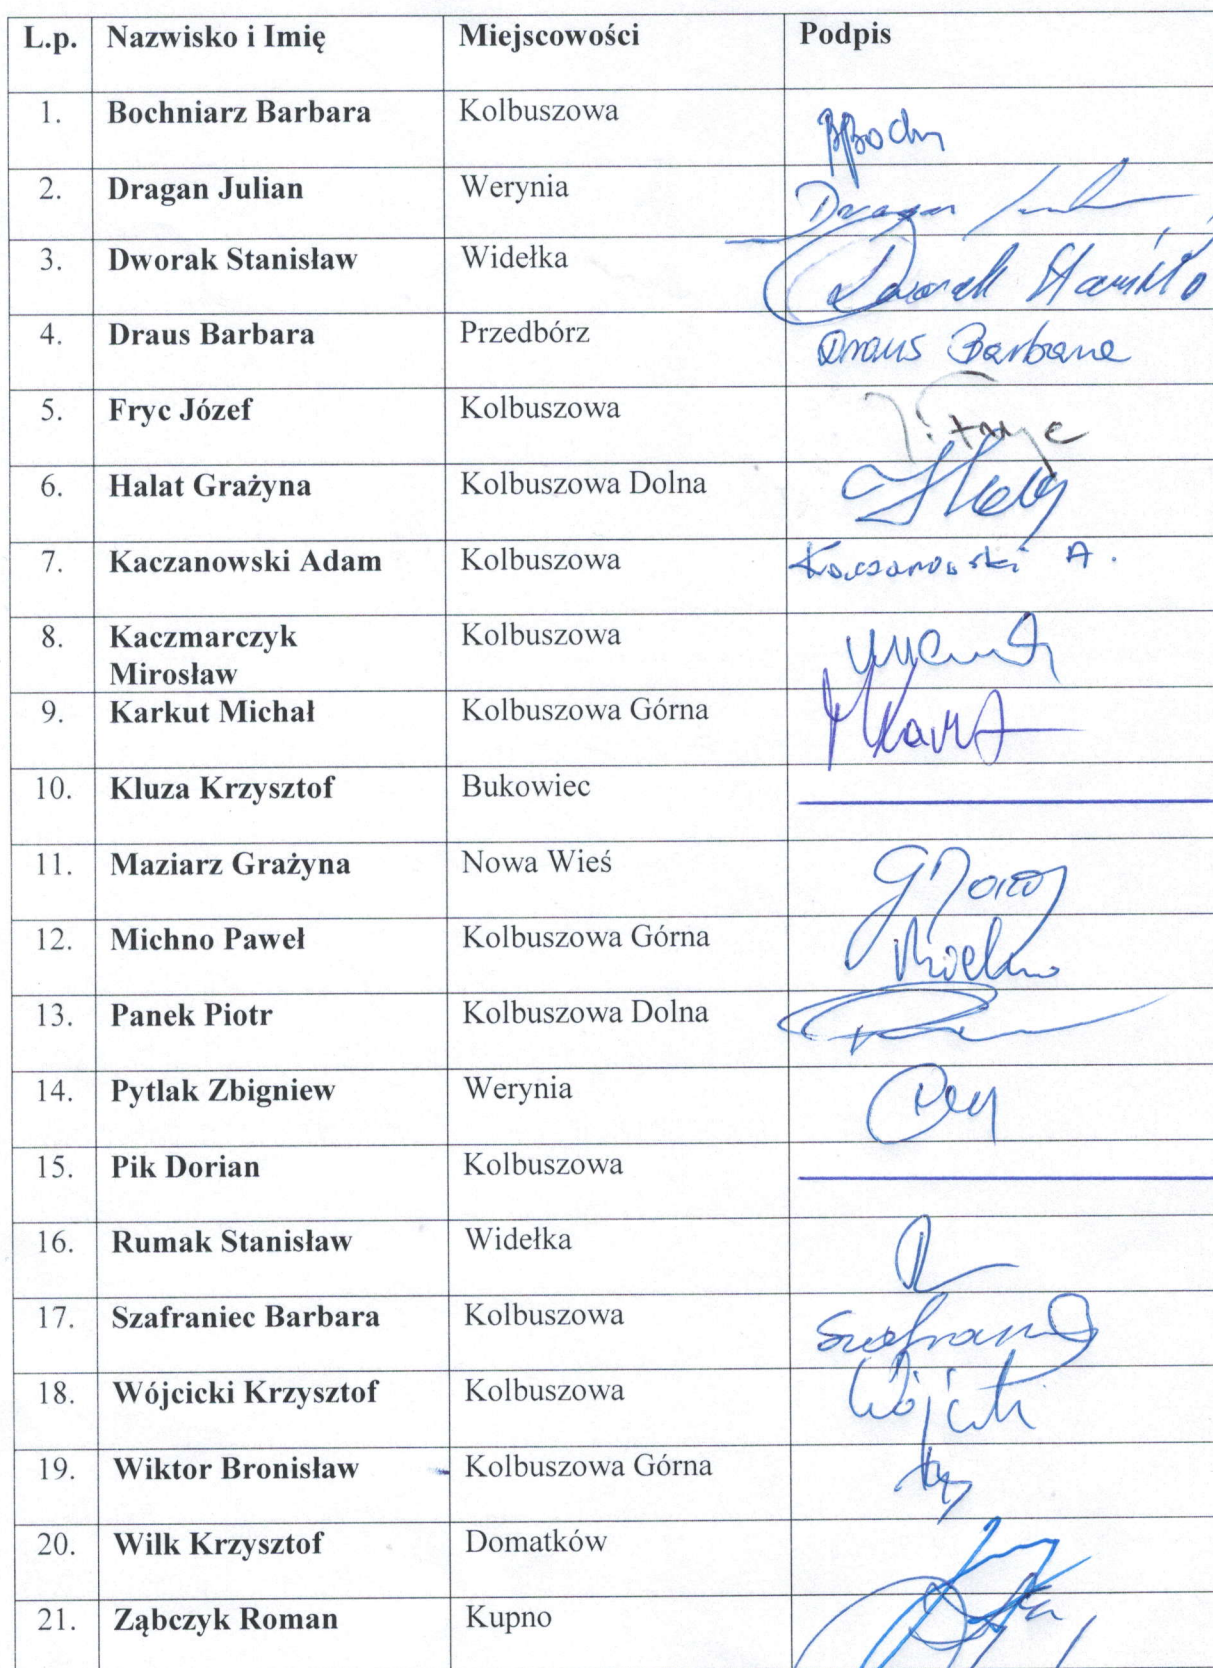 L.p. Nazwisko i Imię Miejscowości Podpis
1. Bochniarz Barbara Kolbuszowa
2. Dragan Julian Werynia Dragan
3. Dworak Stanisław Widełka Dworak
4. Draus Barbara Przedbórz Draus Barbara
5. Fryc Józef Kolbuszowa J. Fryc
6. Halat Grażyna Kolbuszowa Dolna
7. Kaczanowski Adam Kolbuszowa Kaczanowski A.
8. Kaczmarczyk Kolbuszowa
Mirosław
9. Karkut Michał Kolbuszowa Górna
10. Kluza Krzysztof Bukowiec
11. Maziarz Grażyna Nowa Wieś
12. Michno Paweł Kolbuszowa Górna
13. Panek Piotr Kolbuszowa Dolna
14. Pytlak Zbigniew Werynia
15. Pik Dorian Kolbuszowa
16. Rumak Stanisław Widełka
17. Szafraniec Barbara Kolbuszowa
18. Wójcicki Krzysztof Kolbuszowa
19. Wiktor Bronisław Kolbuszowa Górna
20. Wilk Krzysztof Domatków
21. Ząbczyk Roman Kupno